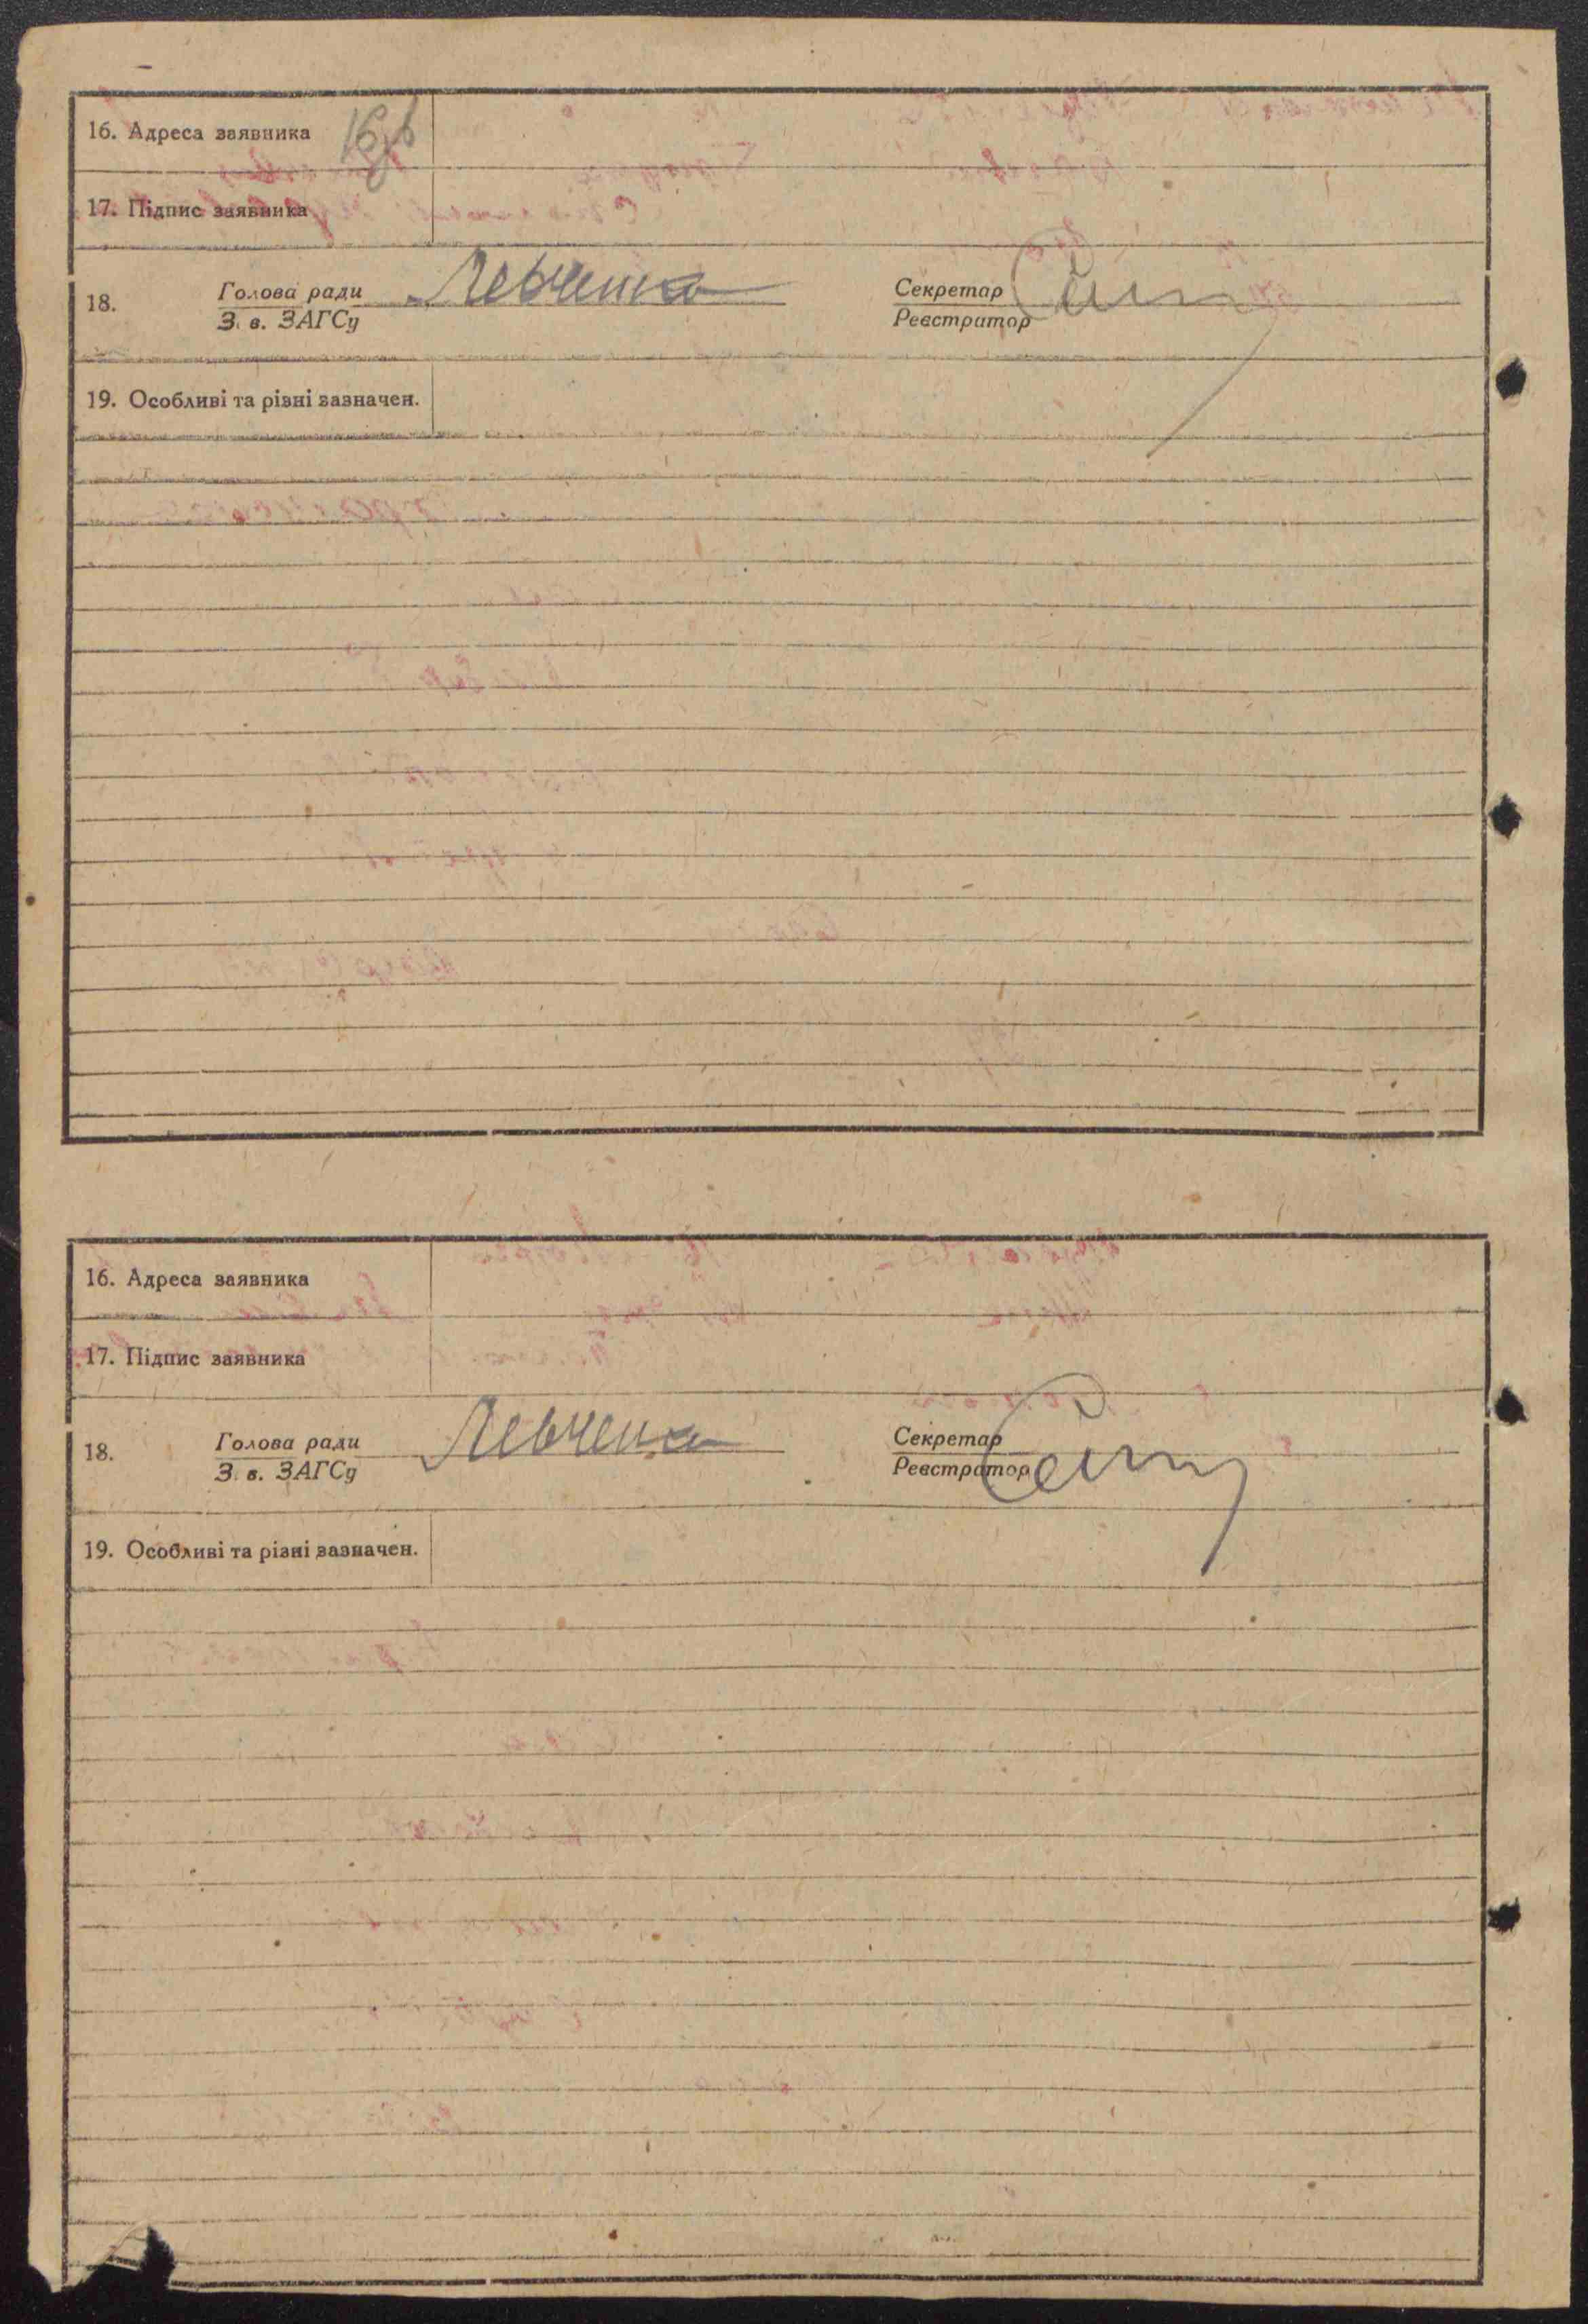 16. Адреса заявника
17. Підпис заявника
18. Голова ради Левченко Секретар
З. в. ЗАГСу Реєстратор
19. Особливі та різні зазначен.
16. Адреса заявника
17. Підпис заявника
18. Голова ради Левченко Секретар
З. в. ЗАГСу Реєстратор
19. Особливі та різні зазначен.